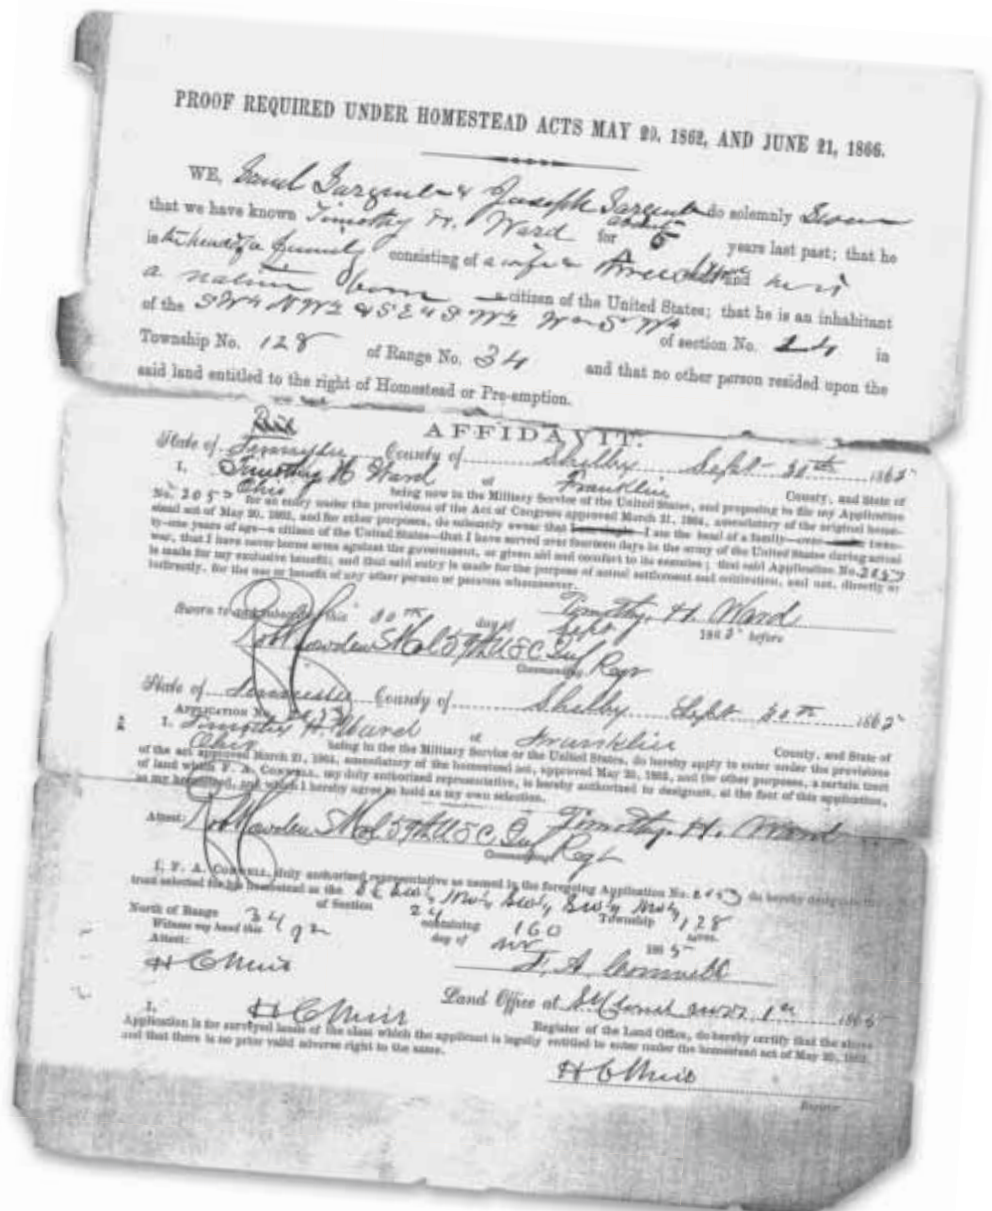 PROOF REQUIRED UNDER HOMESTEAD ACTS MAY 20, 1862, AND JUNE 21, 1866.
WE, & Joseph do solemnly
that we have known Timothy H. Ward for about 5 years last past; that he
is the head of a family consisting of a wife & and he is
a native born citizen of the United States; that he is an inhabitant
of the of section No. 24 in
Township No. 128 of Range No. 34 and that no other person resided upon the
said land entitled to the right of Homestead or Pre-emption.
AFFIDAVIT.
State of Tennessee County of Shelby Sept 30th 1865
I, Timothy H Ward of Franklin County, and State of
Ohio being now in the Military Service of the United States, and proposing to file my Application
No. for an entry under the provisions of the Act of Congress approved March 21, 1864, amendatory of the original home-
stead act of May 20, 1862, and for other purposes, do solemnly swear that I am the head of a family—over twen-
ty-one years of age—a citizen of the United States—that I have served over fourteen days in the army of the United States during actual
war, that I have never borne arms against the government, or given aid and comfort to its enemies; that said Application No.
is made for my exclusive benefit; and that said entry is made for the purpose of actual settlement and cultivation, and not, directly or
indirectly, for the use or benefit of any other person or persons whomsoever.
Timothy. H. Ward
Sworn to and subscribed this 30th day of Sept 1865 before
59th U S C Inf Regt
Commanding
State of Tennessee County of Shelby Sept 30th 1865
APPLICATION No.
I, Timothy H Ward of Franklin County, and State of
Ohio being in the the Military Service or the United States, do hereby apply to enter under the provisions
of the act approved March 21, 1864, amendatory of the homestead act, approved May 20, 1862, and for other purposes, a certain tract
of land which F. A. CORNWELL, my duly authorized representative, is hereby authorized to designate, at the foot of this application,
as my homestead, and which I hereby agree to hold as my own selection.
Timothy. H. Ward
Attest: 59th U S C Inf Regt
Commanding
I, F. A. CORNWELL, duly authorized representative as named in the foregoing Application No. do hereby designate the
tract selected for his homestead as the
of Section 24 Township 128
North of Range 34 containing 160 acres.
Witness my hand this day of 1865
Attest:
H C Muir F. A. Cornwell
Land Office at St Cloud 1st 1865
I, H C Muir Register of the Land Office, do hereby certify that the above
Application is for surveyed lands of the class which the applicant is legally entitled to enter under the homestead act of May 20, 1862,
and that there is no prior valid adverse right to the same.
H C Muir
Register